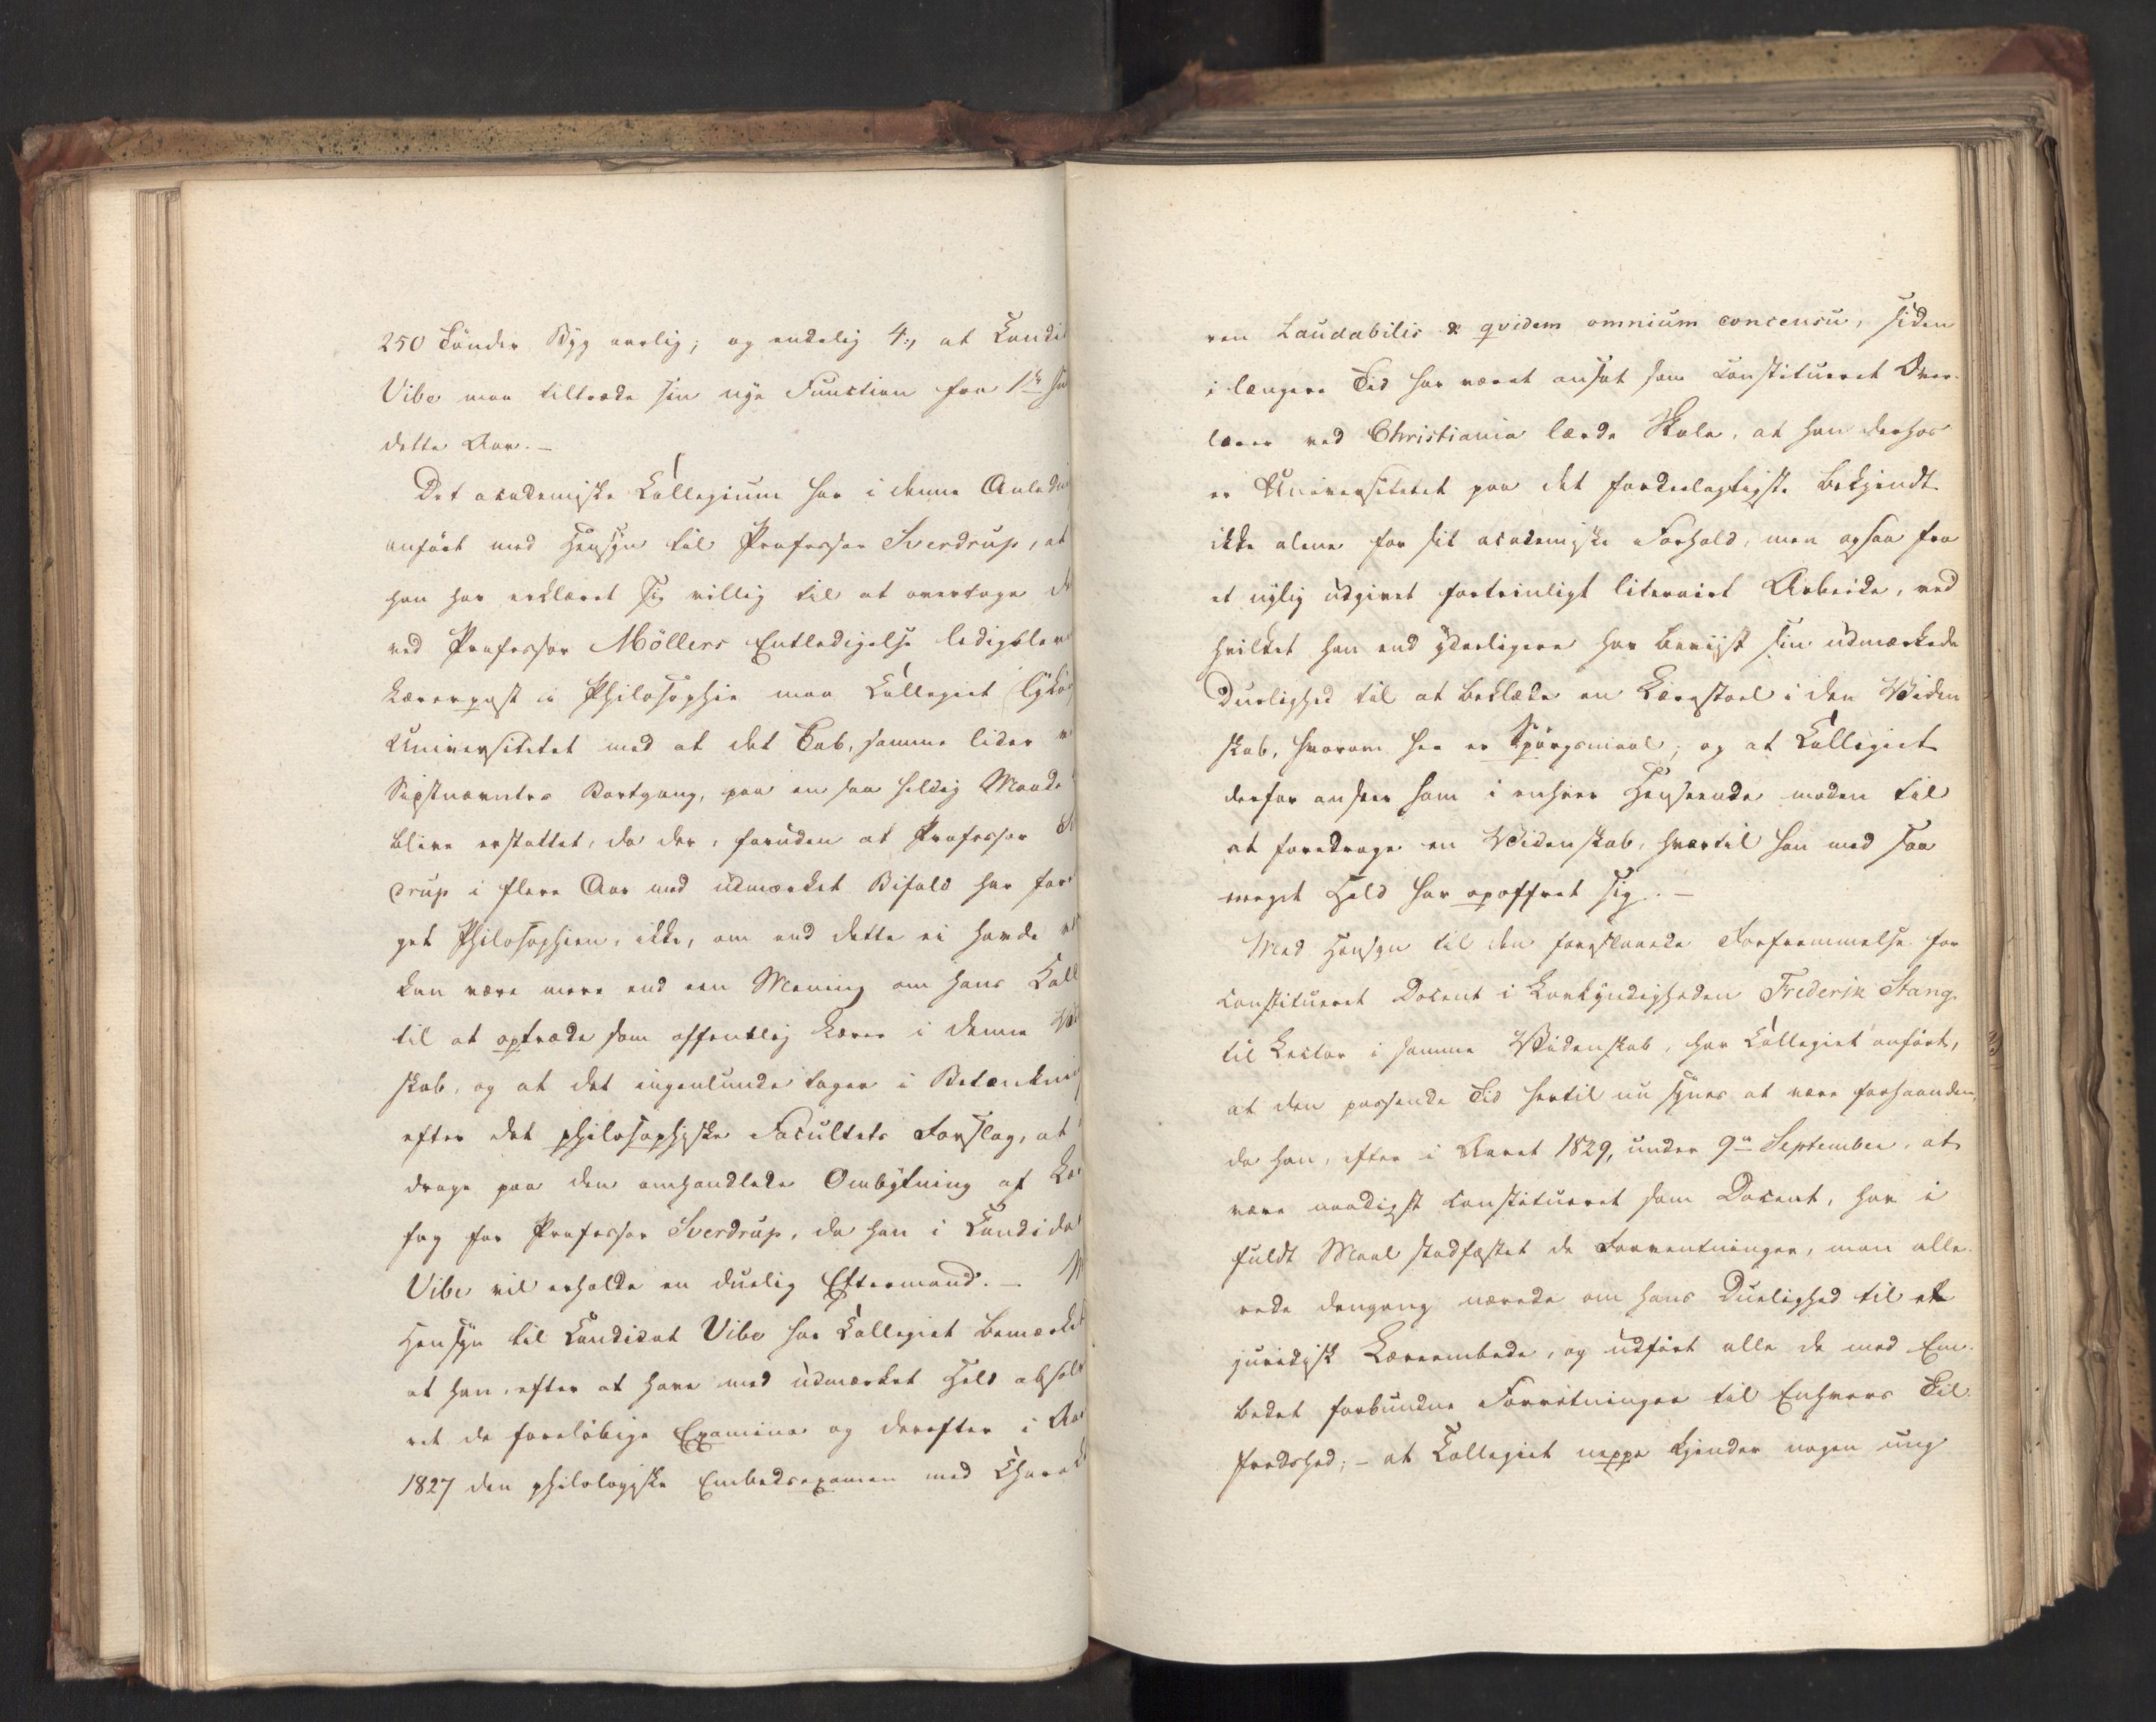 250 Tönder Byg aarlig; og endelig 4:, at Candi
Vibe maa tiltræde sin nye Function fra 1ste
dette Aar. –
Det academiske Collegium har i denne Anledn
anfört med Hensyn til Professor Sverdrup, at
han har erklæret sig villig til at overtage d
ved Professor Möllers Entledigelse ledigblev
Lærerpost i Philosophie maa Collegiet lykön
Universitetet med at det Tab, samme lider v
Sidstnævntes Bortgang, paa en saa heldig Maade
blive erstattet, da der, foruden at Professor
drup i flere Aar med udmærket Bifald har for
get Philosophien, ikke, om end dette ei havde
kan være mere end een Mening om hans Kall
til at optræde som offentlig Lærer i denne Vid
skab, og at det ingenlunde tager i Betænkni
efter det philosophiske Facultets Forslag, at
drage paa den omhandlede Ombytning af Læ
fag for Professor Sverdrup, da han i Candida
Vibe vil erholde en duelig Eftermand. – M
Hensyn til Candidat Vibe har Collegiet bemærket
at han, efter at have med udmærket Held absolv
ret de foreløbige Examina og derefter i Aar
1827 den philologiske Embedsexamen med Charak
ren Laudabilis & qvidem omnium concensu, siden
i længere Tid har været ansat som constitueret Over-
lærer ved Christiania lærde Skole, at han derhos
er Universitetet paa det fordeelagtigste bekjendt
ikke alene for sit academiske Forhold, men ogsaa fra
et nylig udgivet fortrinligt literairt Arbeide, ved
hvilket han end yderligere har beviist sin udmærkede
Duelighed til at beklæde en Lærestoel i den Viden
skab, hvorom her er Spörgsmaal; og at Collegiet
derfor anseer ham i enhver Henseende moden til
at foredrage en Videnskab, hvortil han med saa
meget Held har opoffret sig. –
Med Hensyn til den foreslaaede Forfremmelse for
constitueret Docent i Lovkyndigheden Frederik Stang
til Lector i samme Videnskab, har Collegiet anfört,
at den passende Tid hertil nu synes at være forhaanden,
da han, efter i Aaret 1829, under 9de September, at
være naadigst constitueret som Docent, har i
fuldt Maal stadfæstet de Forventninger, man alle-
rede dengang nærede om hans Duelighed til et
juridisk Læreembede, og udfört alle de med Em-
bedet forbundne Forretninger til Enhvers Til-
fredshed; – at Collegiet neppe kjender nogen ung